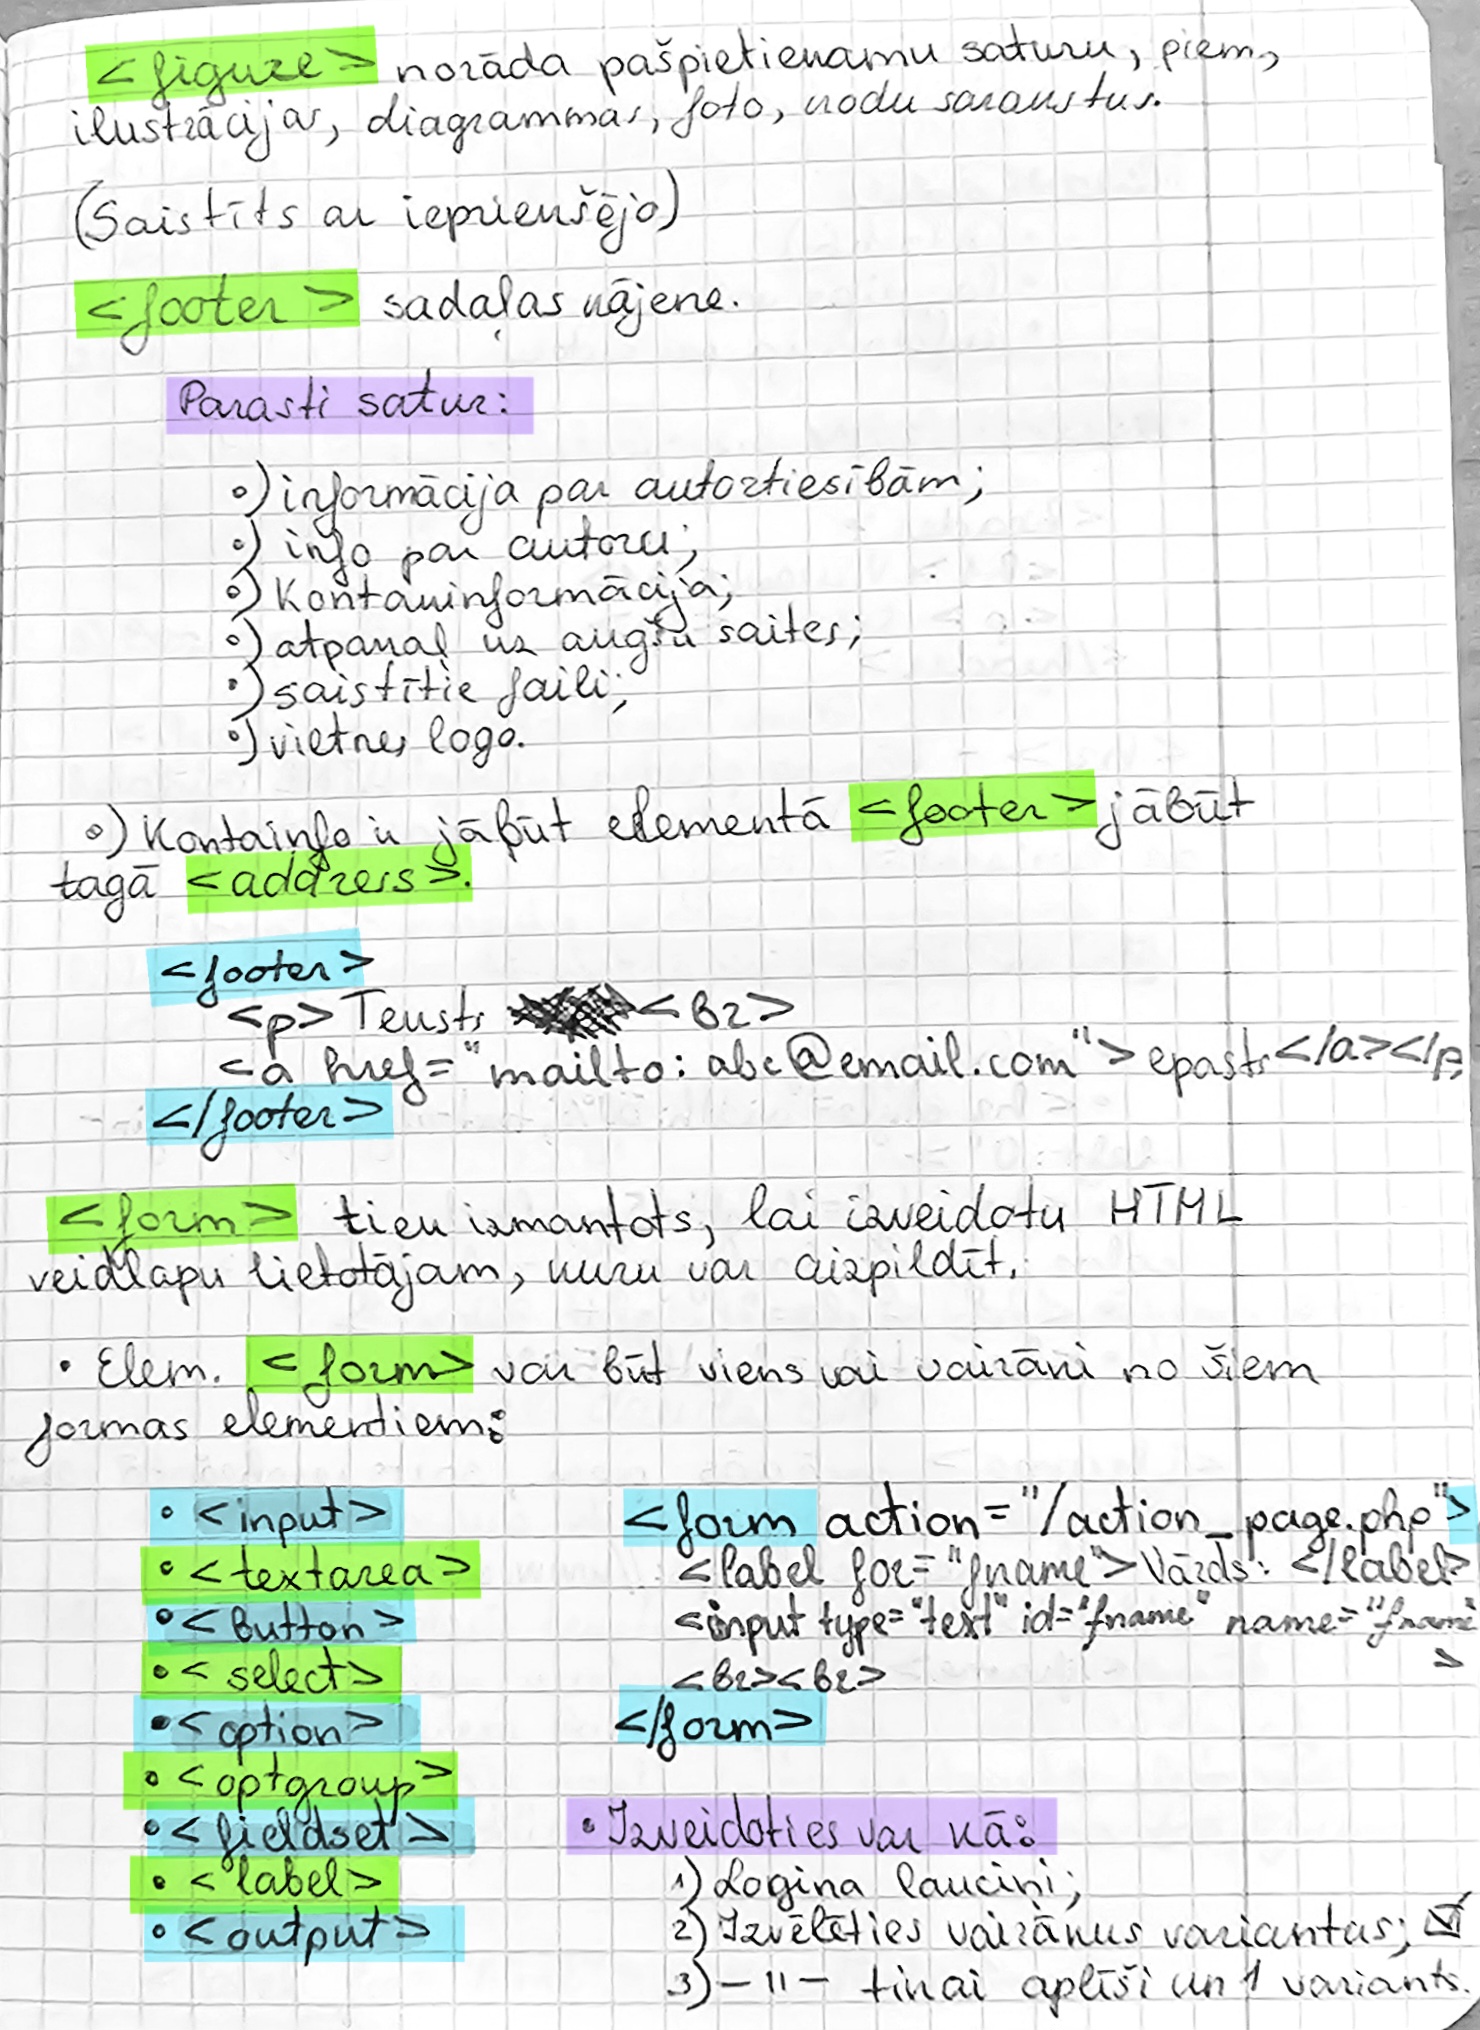 <figure> norāda pašpietiekamu saturu, piem,
ilustrācijas, diagrammas, foto, kodu sarakstus.
(Saistīts ar iepriekšējo)
<footer> sadaļas kājene.
Parasti satur:
°) informācija par autortiesībām;
°) info par autoru;
°) Kontakinformācija;
°) atpakaļ uz augšu saites;
°) saistītie faili;
°) vietnes logo.
°) Kontainfo ir jābūt elementā <footer> jābūt
tagā <address>.
<footer>
<p> Teksts <br>
<a href="mailto: abc@email.com"> epasts </a></p>
</footer>
<form> tiek izmantots, lai izveidotu HTML
veidlapu lietotājam, kuru var aizpildīt.
• Elem. <form> var būt viens vai vairāki no šiem
formas elementiem:
• <input>
• <textarea>
• <button>
• <select>
• <option>
• <optgroup>
• <fieldset>
• <label>
• <output>
<form action="/action_page.php">
<label for="fname"> Vārds: </label>
<input type="text" id="fname" name="fname"
>
<br><br>
</form>
• Izveidoties var kā:
1) Logina lauciņi;
2) Izvēlēties vairākus variantus; ☑
3) — 11 — tikai aplīši un 1 variants.